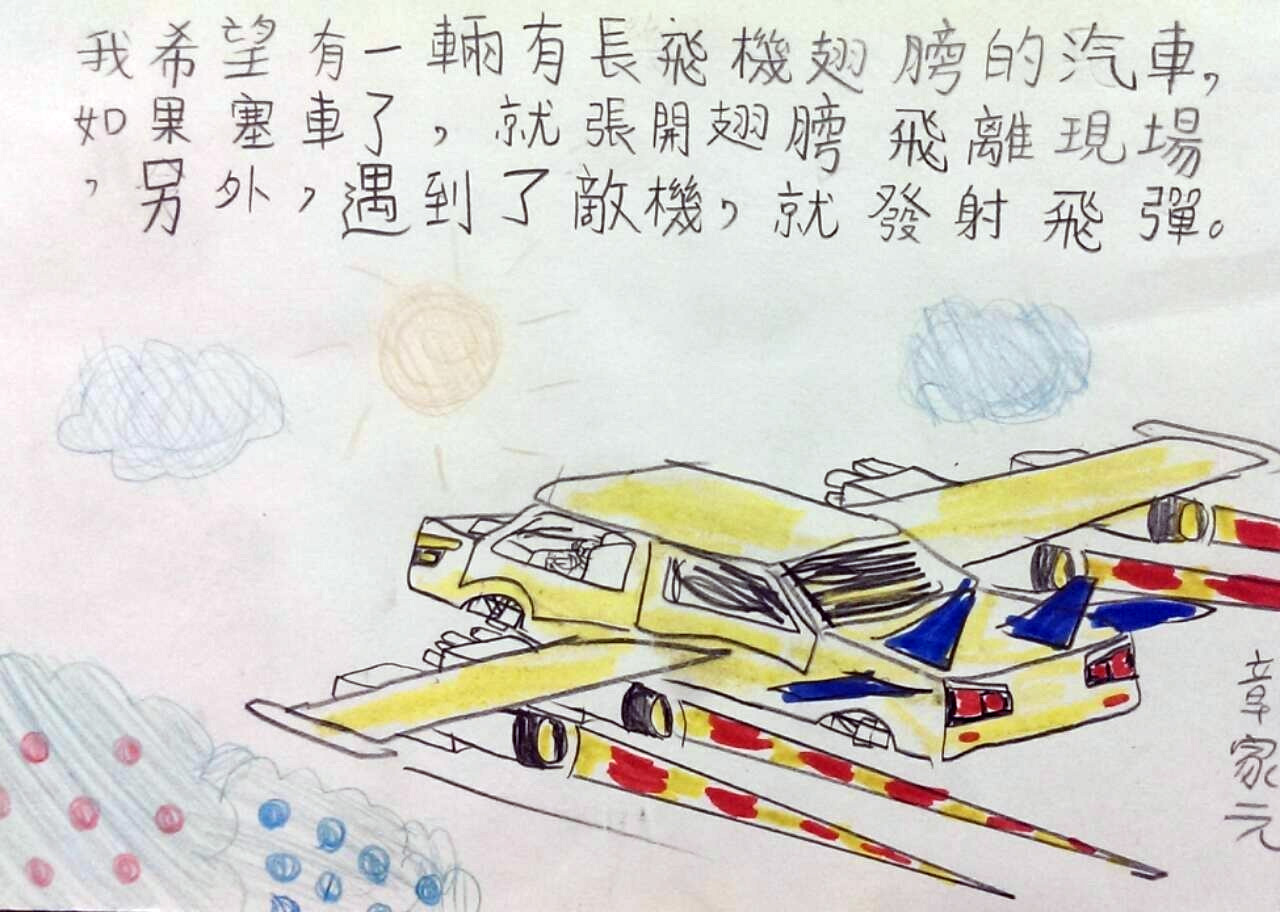 我希望有一輛有長飛機翅膀的汽車，
如果塞車了，就張開翅膀飛離現場
，另外，遇到了敵機，就發射飛彈。
章家元